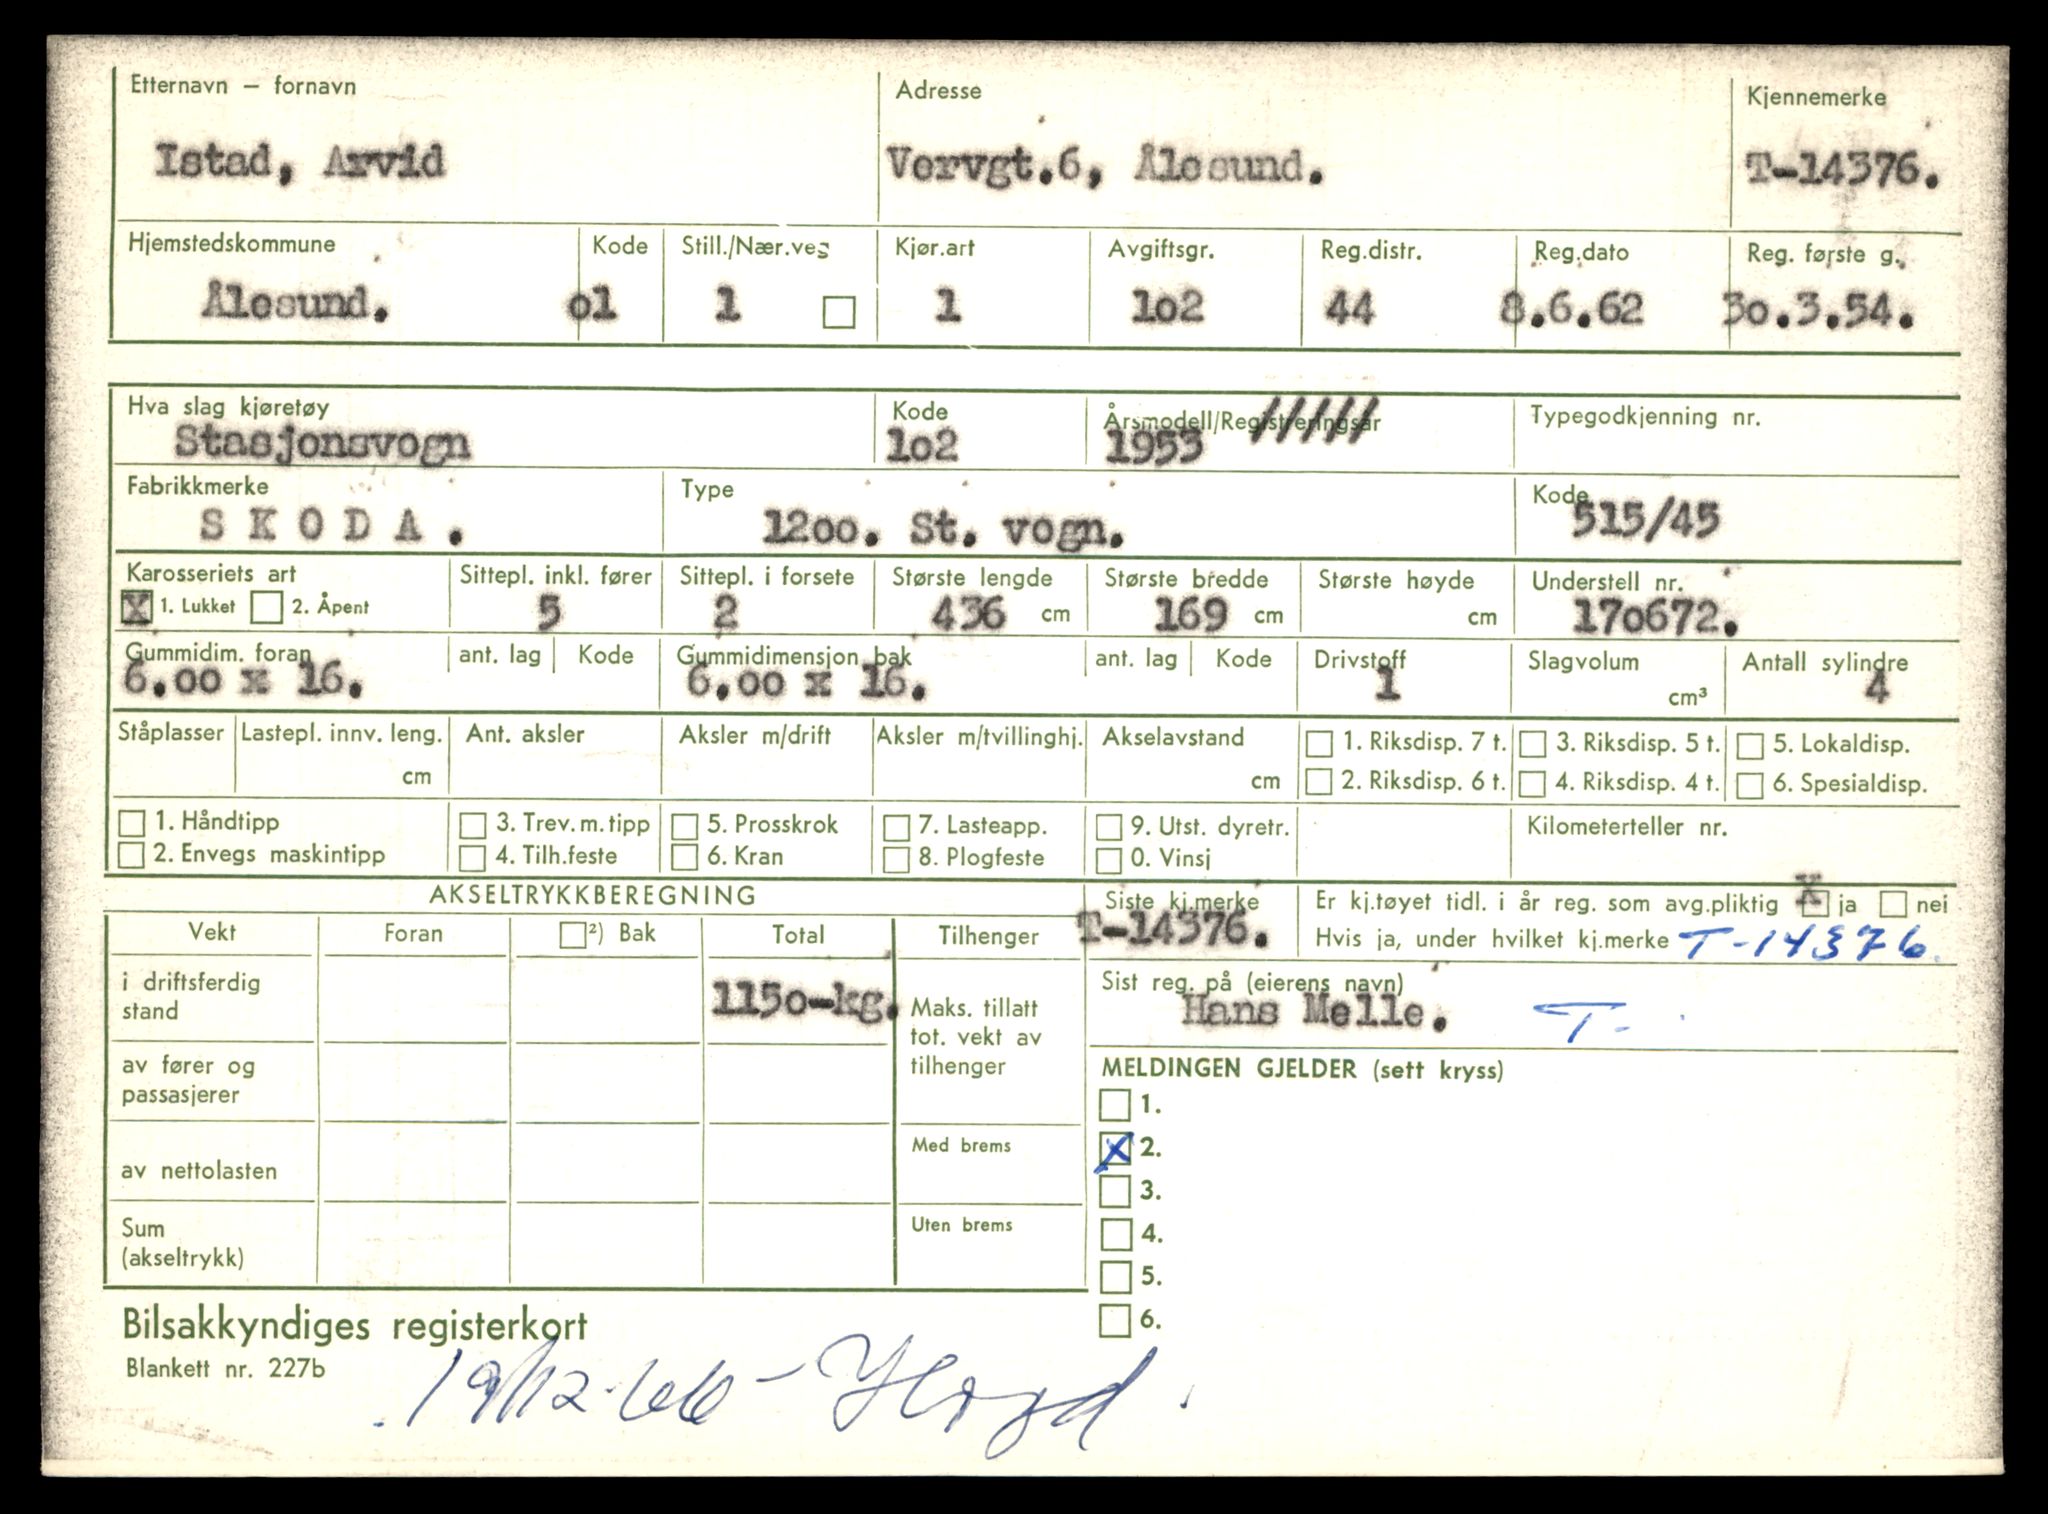 Etternavn – fornavn Adresse Kjennemerke
Istad, Arvid Vervgt.6, Ålesund. T-14376.
Hjemstedskommune Kode Still./Nær.veg Kjør.art Avgiftsgr. Reg.distr. Reg.dato Reg. første g.
Ålesund. o1 1 1 1o2 44 8.6.62 3o.3.54.
Hva slag kjøretøy Kode Årsmodell/Registreringsår Typegodkjenning nr.
Stasjonsvogn 1o2 1953 /////
Fabrikkmerke Type Kode
S K O D A . 12oo. St. vogn. 515/45
Karosseriets art Sittepl. inkl. fører Sittepl. i forsete Største lengde Største bredde Største høyde Understell nr.
X 1. Lukket 2. Åpent 5 2 436 cm 169 cm cm 17o672.
Gummidim. foran ant. lag Kode Gummidimensjon bak ant. lag Kode Drivstoff Slagvolum Antall sylindre
6.oo x 16. 6.oo x 16. 1 cm³ 4
Ståplasser Lastepl. innv. leng. Ant. aksler Aksler m/drift Aksler m/tvillinghj. Akselavstand 1. Riksdisp. 7 t. 3. Riksdisp. 5 t. 5. Lokaldisp.
cm cm 2. Riksdisp. 6 t. 4. Riksdisp. 4 t. 6. Spesialdisp.
1. Håndtipp 3. Trev. m. tipp 5. Prosskrok 7. Lasteapp. 9. Utst. dyretr. Kilometerteller nr.
2. Envegs maskintipp 4. Tilh.feste 6. Kran 8. Plogfeste 0. Vinsj
AKSELTRYKKBEREGNING Siste kj.merke Er kj.tøyet tidl. i år reg. som avg.pliktig X ja nei
Vekt Foran ²) Bak Total Tilhenger T-14376. Hvis ja, under hvilket kj.merke T-14376.
i driftsferdig
stand 115o-kg. Maks. tillatt
tot. vekt av
tilhenger
Sist reg. på (eierens navn)
Hans Melle. T-
av fører og
passasjerer
MELDINGEN GJELDER (sett kryss)
1.
X 2.
3.
4.
5.
6.
av nettolasten Med brems
Sum
(akseltrykk) Uten brems
Bilsakkyndiges registerkort
Blankett nr. 227b
19/12-66 -